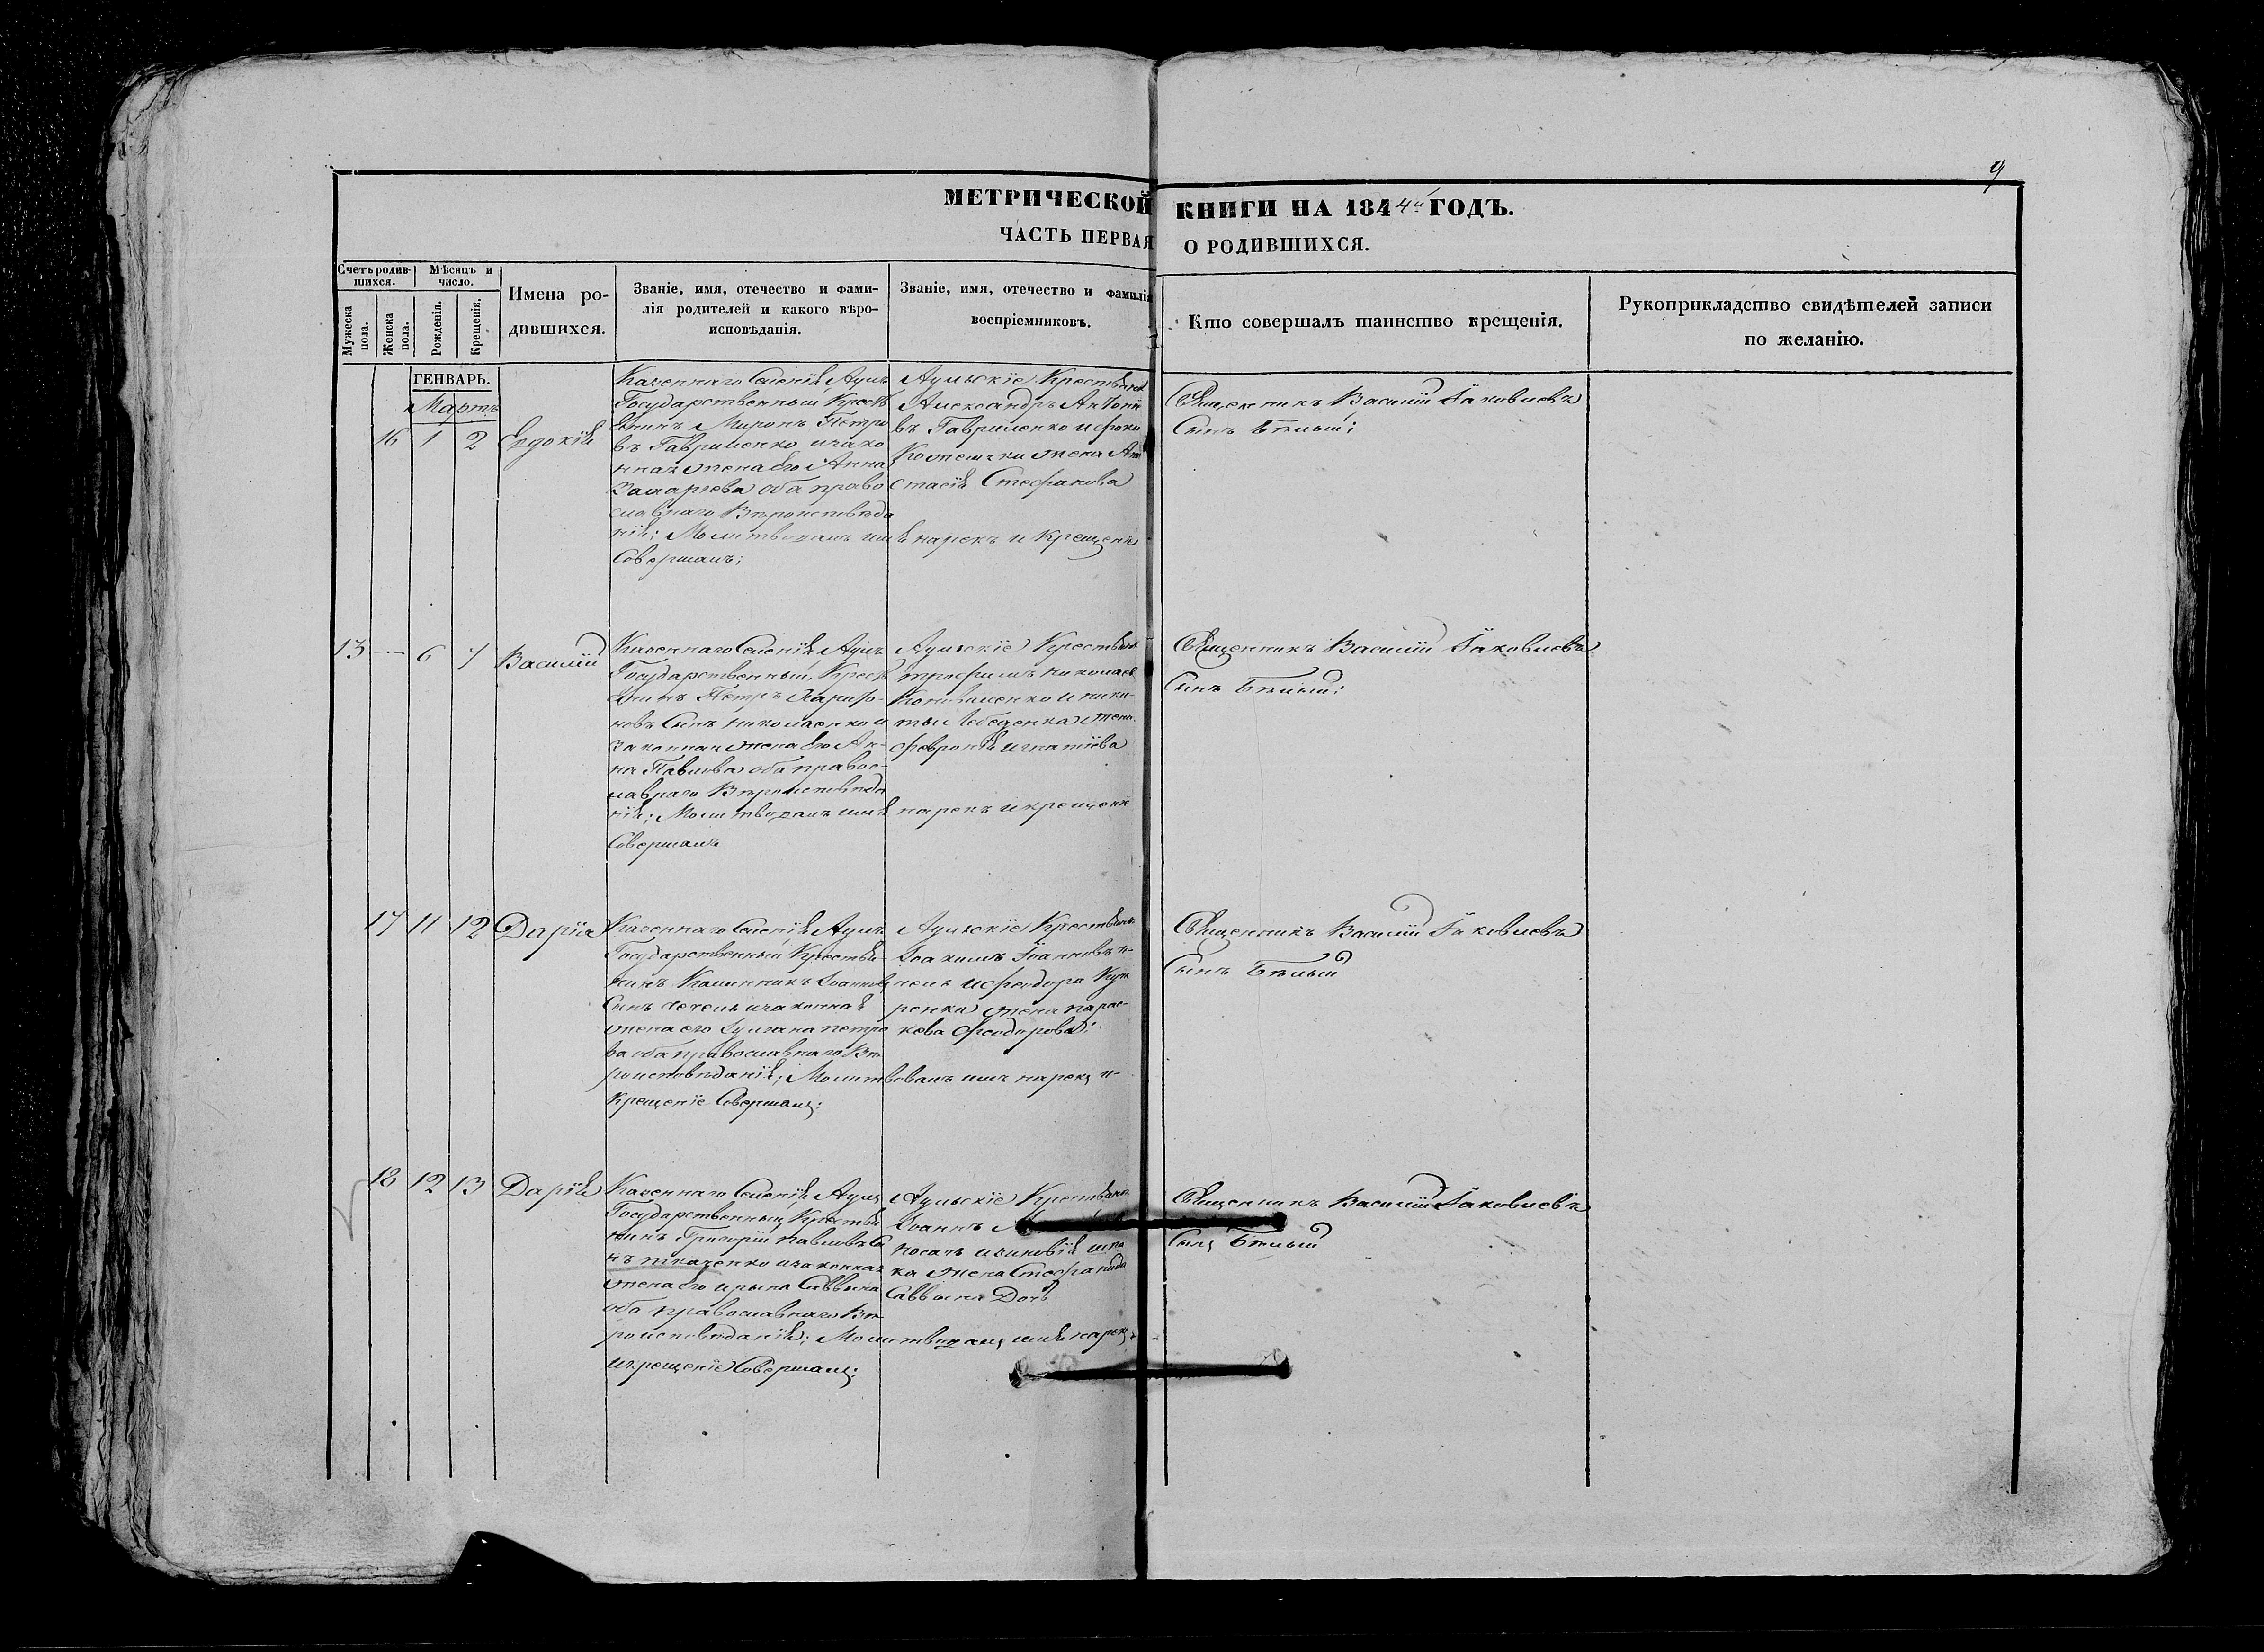 9
МЕТРИЧЕСКОЙ КНИГИ НА 1844й ГОДЪ.
ЧАСТЬ ПЕРВАЯ О РОДИВШИХСЯ.
Счетъ родив-
шихся.
Мѣсяцъ и
число.
Мужеска
пола.
Женска
пола.
Рожденія.
Крещенія.
Имена ро-
дившихся.
Званіе, имя, отечество и фами-
лія родителей и какого вѣро-
исповѣданія.
Званіе, имя, отечество и фамилія
воспріемниковъ.
Кто совершалъ таинство крещенія.
Рукоприкладство свидѣтелей записи
по желанію.
ГЕНВАРЬ.
Мартъ
16 1 2 Евдокія
Казеннаго Селенія Аулъ
Государственный Крестя
нинъ Миронъ Петро
въ Гавриленко и зако
нная жена его Анна
Захарьева оба право
славнаго Вѣроисповѣда
нія; Молитвовалъ имя нарекъ и Крещеніе
Совершалъ;
Аульскіе Крестьяне
Александръ Антоніе
въ Гавриленко и
жена Ана
стасія Стефанова
Священникъ Василій Іаковлевъ
Сынъ Бѣлый;
13 — 6 7 Василій
Казеннаго Селенія Аулъ
Государственный Кресть
янинъ Петръ
новъ Сынъ Николаенко и
Законная жена его Ан-
на Павлова оба правос-
лавнаго Вѣроисповѣда
нія; Молитвовалъ имя нарекъ и крещеніе
Совершалъ
Аульскіе Крестьяне
Трофимъ Николаев
Коноваленко и Ники-
ты Лебеденка жена
Февронія Игнатіева
Священникъ Василій Іаковлевъ
Сынъ Бѣлый;
17 11 12 Дарія
Казеннаго Селенія Аулъ
Государственный Крестья
нинъ Калинникъ Іоаннов
Сынъ Чечель и законная
жена его Іуліана Петро
ва оба православнаго Вѣ
роисповѣданія; Молитвовалъ имя нарекъ и
Крещеніе Совершалъ;
Аульскіе Крестьяне
Іоакимъ Іоанновъ Че-
чель и Феодора
жена Парас-
кева Феодорова;
Священникъ Василій Іаковлевъ
Сынъ Бѣлый
18 12 13 Дарія
Казеннаго Селенія Аулъ
Государственный Крестья
нинъ Григорій Павловъ Сы
нъ Ткаченко и законная
жена его Ирина Саввина
оба Православнаго Вѣ
роисповѣданія; Молитвовалъ имя нарекъ
и крещеніе Совершалъ;
Аульскіе Крестьяне
Іоаннъ
Носачъ и Зиновія
ка жена Стефанида
Саввина Дочь
Священникъ Василій Іаковлевъ
Сынъ Бѣлый